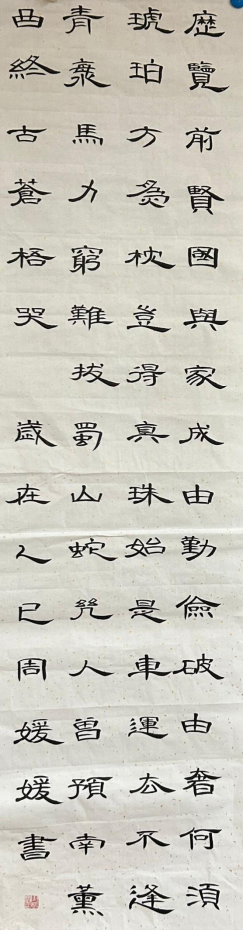 歷覽前賢國與家成由勤儉破由奢何須
琥珀方為枕豈得真珠始是車運去不逢
青海馬力窮難拔蜀山蛇幾人曾預南薰
曲終古蒼梧哭
歲在乙巳周媛媛書